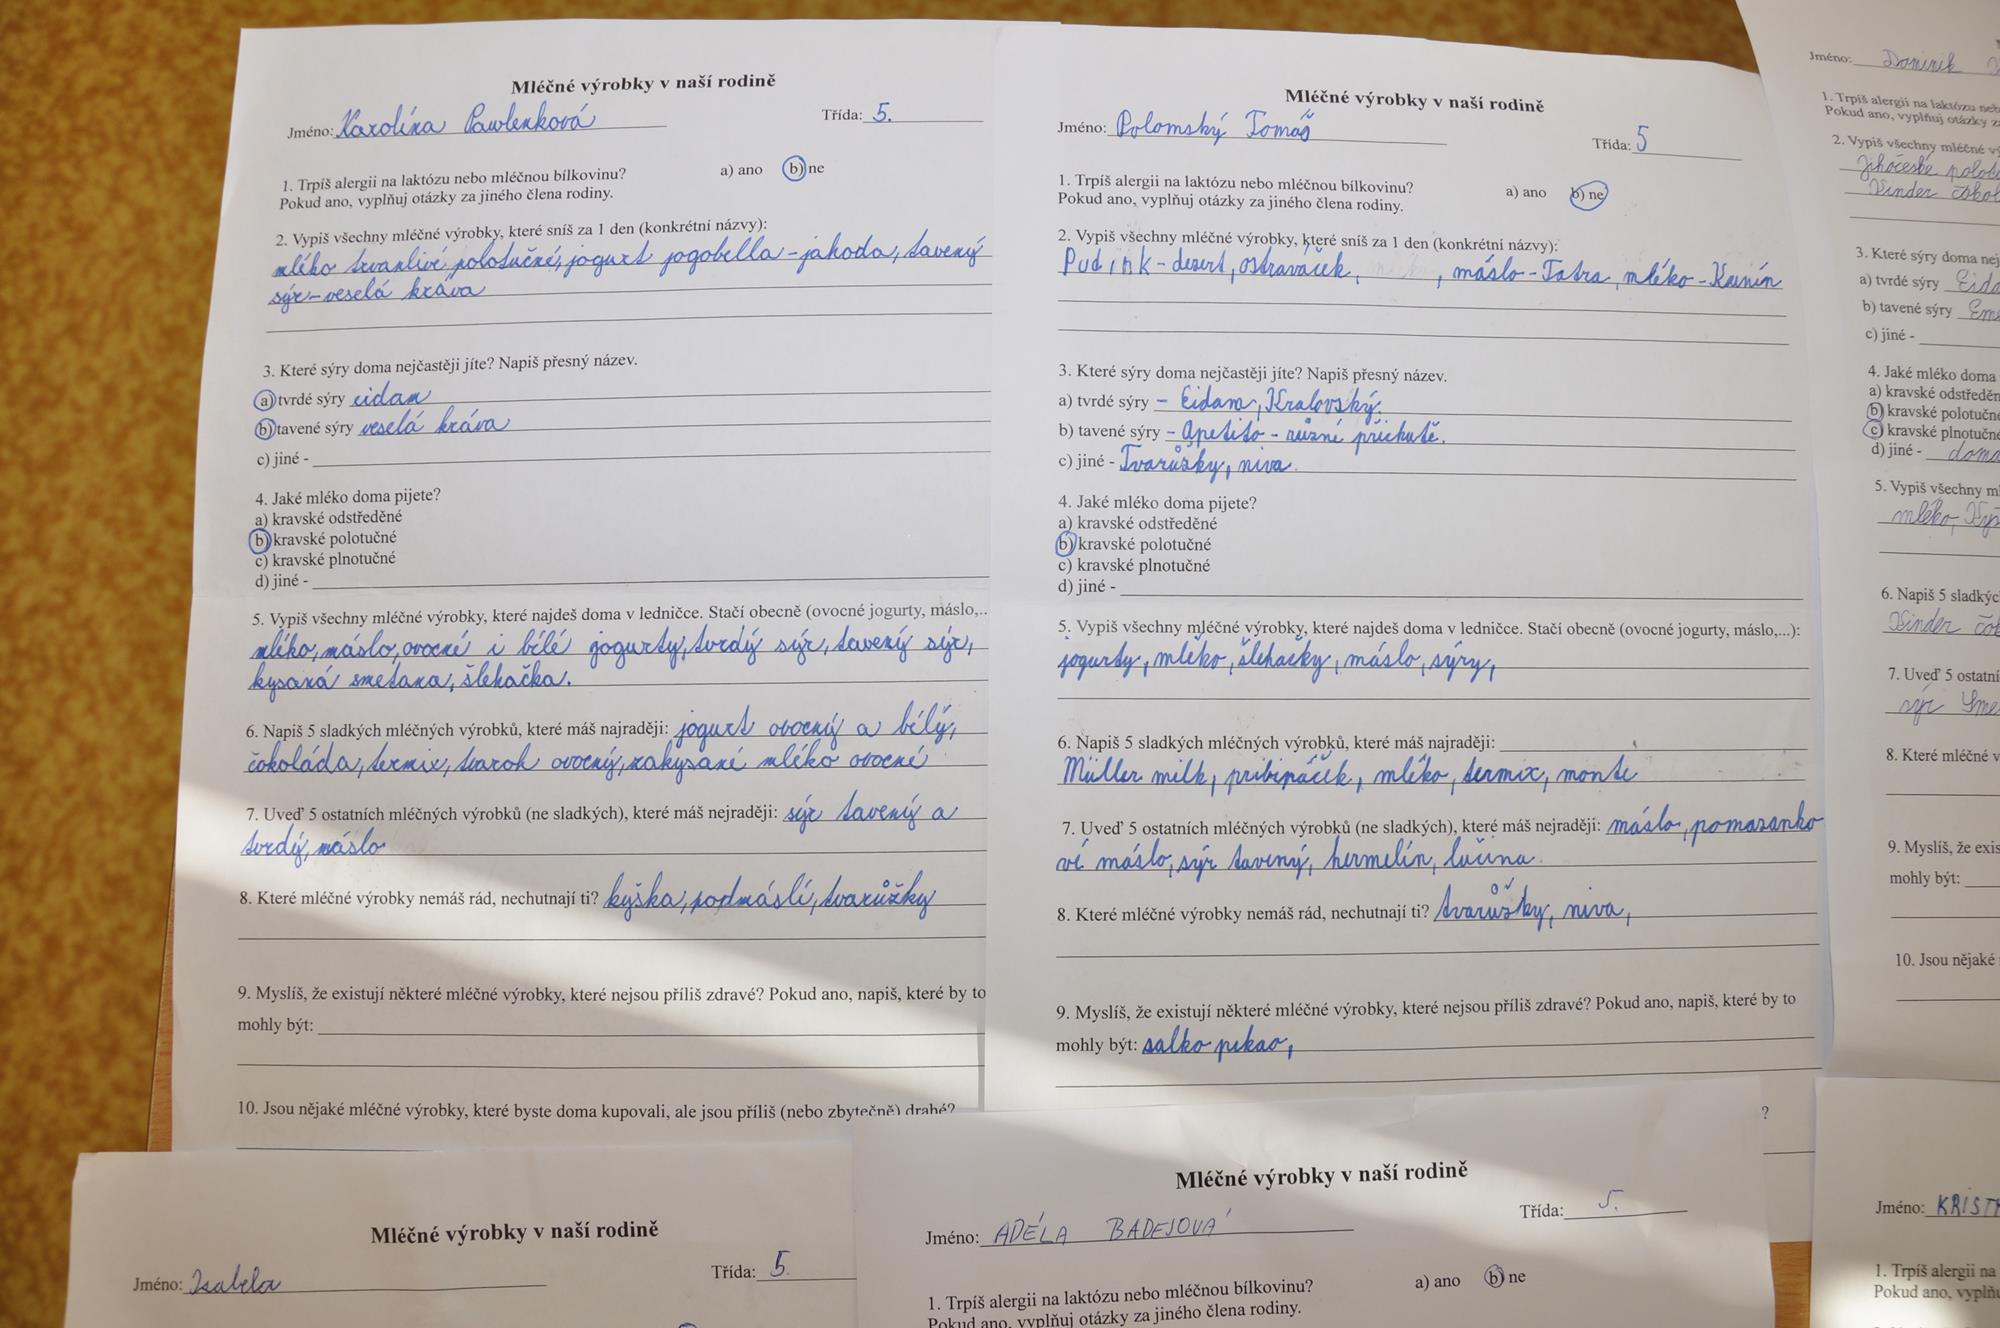 Mléčné výrobky v naší rodině
Jméno: Karolína Pawlenková Třída: 5.
1. Trpíš alergii na laktózu nebo mléčnou bílkovinu? a) ano b) ne
Pokud ano, vyplňuj otázky za jiného člena rodiny.
2. Vypiš všechny mléčné výrobky, které sníš za 1 den (konkrétní názvy):
mléko trvanlivé, polotučné, jogurt jogobella - jahoda, tavený
sýr - veselá kráva
3. Které sýry doma nejčastěji jíte? Napiš přesný název.
a) tvrdé sýry eidam
b) tavené sýry veselá kráva
c) jiné -
4. Jaké mléko doma pijete?
a) kravské odstředěné
b) kravské polotučné
c) kravské plnotučné
d) jiné -
5. Vypiš všechny mléčné výrobky, které najdeš doma v ledničce. Stačí obecně (ovocné jogurty, máslo,..
mléko, máslo, ovocné i bílé jogurty, tvrdý sýr, tavený sýr,
kysaná smetana, šlehačka.
6. Napiš 5 sladkých mléčných výrobků, které máš najraději: jogurt ovocný a bílý,
čokoláda, termix, tvaroh ovocný, zakysané mléko ovocné
7. Uveď 5 ostatních mléčných výrobků (ne sladkých), které máš nejraději: sýr tavený a
tvrdý, máslo
8. Které mléčné výrobky nemáš rád, nechutnají ti? kyška, podmáslí, tvarůžky
9. Myslíš, že existují některé mléčné výrobky, které nejsou příliš zdravé? Pokud ano, napiš, které by to
mohly být:
10. Jsou nějaké mléčné výrobky, které byste doma kupovali, ale jsou příliš (nebo zbytečně) drahé?
Mléčné výrobky v naší rodině
Jméno: Polomský Tomáš
Třída: 5
1. Trpíš alergii na laktózu nebo mléčnou bílkovinu? a) ano b) ne
Pokud ano, vyplňuj otázky za jiného člena rodiny.
2. Vypiš všechny mléčné výrobky, které sníš za 1 den (konkrétní názvy):
Pudink - desert, ostravaček, , máslo - Tatra, mléko - Kunín
3. Které sýry doma nejčastěji jíte? Napiš přesný název.
a) tvrdé sýry - Eidam, Kralovský.
b) tavené sýry - Apetito - různé příchutě.
c) jiné - Tvarůžky, niva.
4. Jaké mléko doma pijete?
a) kravské odstředěné
b) kravské polotučné
c) kravské plnotučné
d) jiné -
5. Vypiš všechny mléčné výrobky, které najdeš doma v ledničce. Stačí obecně (ovocné jogurty, máslo,...):
jogurty, mléko, šlehačky, máslo, sýry,
6. Napiš 5 sladkých mléčných výrobků, které máš najraději:
Müller milk, pribináček, mléko, termix, monte
7. Uveď 5 ostatních mléčných výrobků (ne sladkých), které máš nejraději: máslo, pomazanko
vé máslo, sýr tavený, hermelín, lučina.
8. Které mléčné výrobky nemáš rád, nechutnají ti? tvarůžky, niva,
9. Myslíš, že existují některé mléčné výrobky, které nejsou příliš zdravé? Pokud ano, napiš, které by to
mohly být: salko pikao,
?
Jméno: Dominik
1. Trpíš alergii na laktózu neb
Pokud ano, vyplňuj otázky z
2. Vypiš všechny mléčné vý
Jihočeské
Kinder
3. Které sýry doma nej
a) tvrdé sýry
b) tavené sýry
c) jiné -
4. Jaké mléko doma
a) kravské odstředěn
b) kravské polotučn
c) kravské plnotučn
d) jiné -
5. Vypiš všechny m
mléko,
6. Napiš 5 sladkýc
Kinder
7. Uveď 5 ostatní
sýr
8. Které mléčné v
9. Myslíš, že exis
mohly být:
10. Jsou nějaké
Mléčné výrobky v naší rodině
Jméno: Isabela Třída: 5.
Mléčné výrobky v naší rodině
Jméno: ADÉLA BADEJOVÁ Třída: 5.
1. Trpíš alergii na laktózu nebo mléčnou bílkovinu? a) ano b) ne
Pokud ano, vyplňuj otázky za jiného člena rodiny.
Jméno: KRIST
1. Trpíš alergii na
Pokud ano, vyplňu